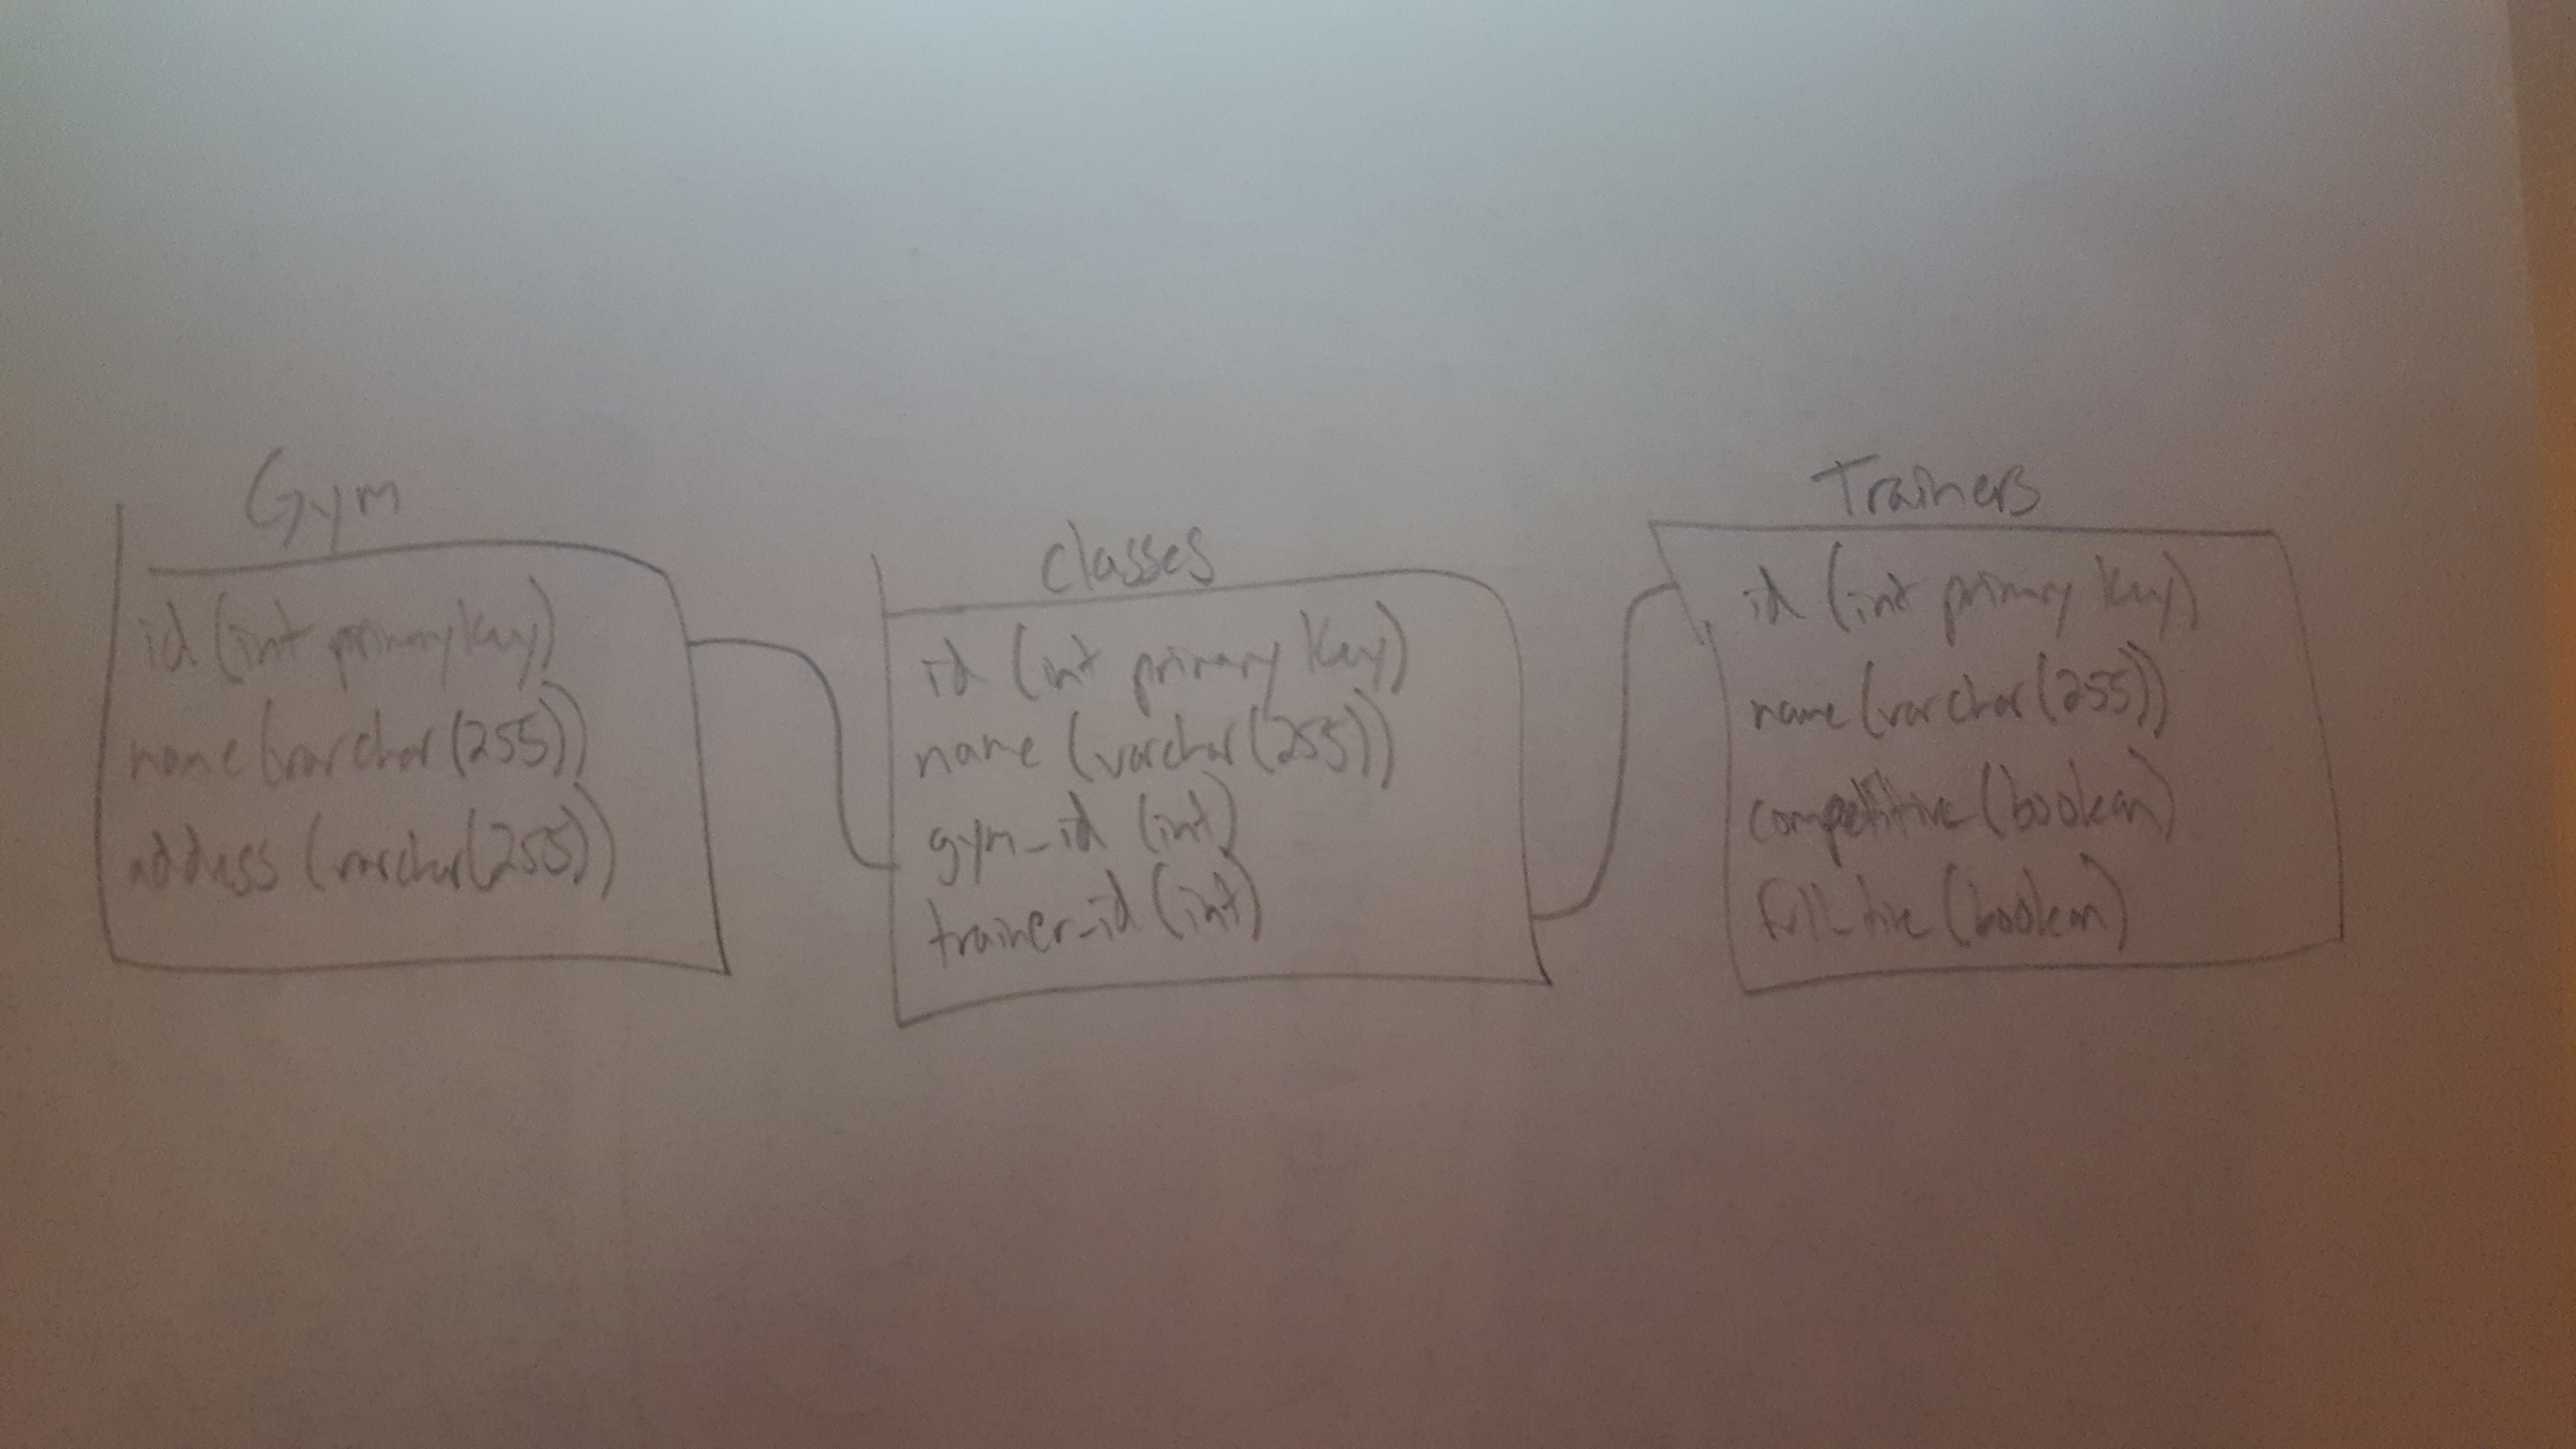 Gym
id (int primary key)
name (varchar(255))
address (varchar(255))
classes
id (int primary key)
name (varchar(255))
gym_id (int)
trainer_id (int)
Trainers
id (int primary key)
name (varchar(255))
competitive (boolean)
full_time (boolean)